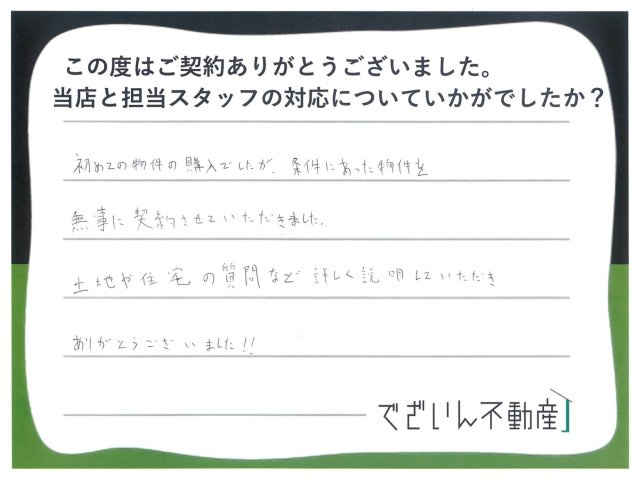 この度はご契約ありがとうございました。
当店と担当スタッフの対応についていかがでしたか？
初めての物件の購入でしたが、条件にあった物件を
無事に契約させていただきました。
土地や住宅の質問など詳しく説明していただき
ありがとうございました!!
でざいん不動産